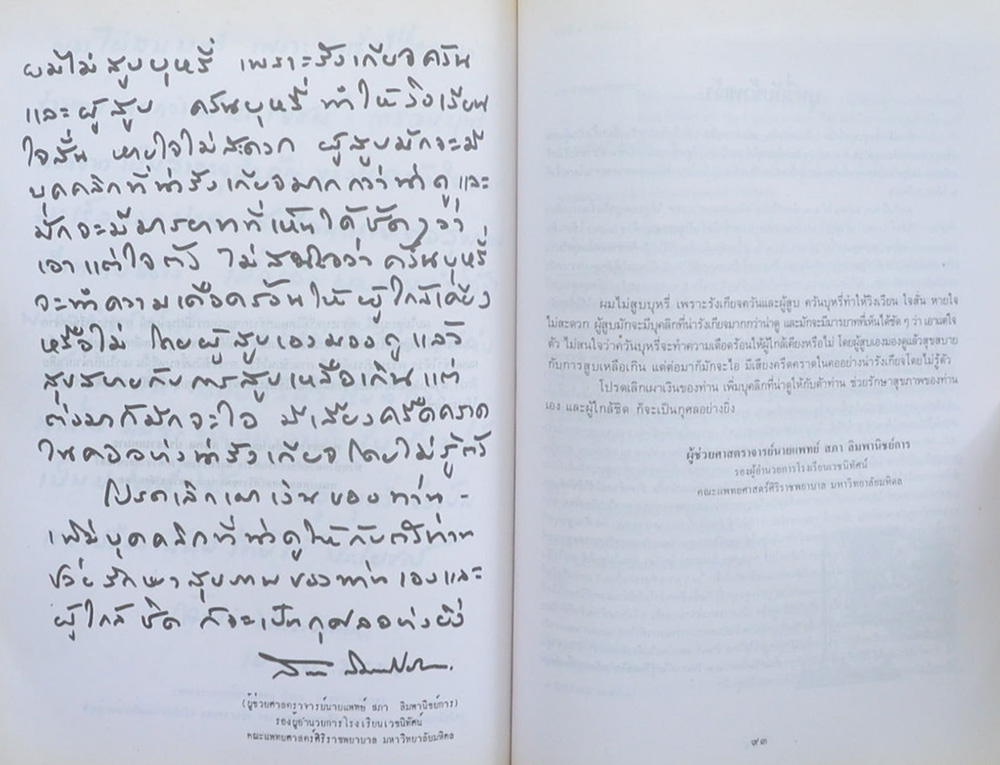 ผมไม่สูบบุหรี่ เพราะรังเกียจควัน
และผู้สูบ ควันบุหรี่ ทำให้วิงเวียน
ใจสั่น หายใจไม่สะดวก ผู้สูบมักจะมี
บุคคลิกที่น่ารังเกียจมากกว่าน่าดู และ
มักจะมีมารยาทที่เห็นได้ชัดๆ ว่า
เอาแต่ใจตัว ไม่สนใจว่า ควันบุหรี่
จะทำความเดือดร้อนให้ผู้ใกล้เคียง
หรือไม่ โดยผู้สูบเองมองดูแล้ว
สุขสบายกับการสูบเหลือเกิน แต่
ต่อมาก็มักจะไอ มีเสียงครืดคราด
ในคออย่างน่ารังเกียจโดยไม่รู้ตัว
โปรดเลิกเผาเงินของท่าน -
เพิ่มบุคคลิกที่น่าดูให้กับตัวท่าน
ช่วยรักษาสุขภาพของท่านเองและ
ผู้ใกล้ชิด ก็จะเป็นกุศลอย่างยิ่ง
(ผู้ช่วยศาสตราจารย์นายแพทย์ สภา ลิมพาณิชย์การ)
รองผู้อำนวยการโรงเรียนเวชนิทัศน์
คณะแพทยศาสตร์ศิริราชพยาบาล มหาวิทยาลัยมหิดล
ผมไม่สูบบุหรี่ เพราะรังเกียจควันและผู้สูบ ควันบุหรี่ทำให้วิงเวียน ใจสั่น หายใจ
ไม่สะดวก ผู้สูบมักจะมีบุคลิกที่น่ารังเกียจมากกว่าน่าดู และมักจะมีมารยาทที่เห็นได้ชัด ๆ ว่า เอาแต่ใจ
ตัว ไม่สนใจว่าควันบุหรี่จะทำความเดือดร้อนให้ผู้ใกล้เคียงหรือไม่ โดยผู้สูบเองมองดูแล้วสุขสบาย
กับการสูบเหลือเกิน แต่ต่อมาก็มักจะไอ มีเสียงครืดคราดในคออย่างน่ารังเกียจโดยไม่รู้ตัว
โปรดเลิกเผาเงินของท่าน เพิ่มบุคลิกที่น่าดูให้กับตัวท่าน ช่วยรักษาสุขภาพของท่าน
เอง และผู้ใกล้ชิด ก็จะเป็นกุศลอย่างยิ่ง
ผู้ช่วยศาสตราจารย์นายแพทย์ สภา ลิมพาณิชย์การ
รองผู้อำนวยการโรงเรียนเวชนิทัศน์
คณะแพทยศาสตร์ศิริราชพยาบาล มหาวิทยาลัยมหิดล
๙๓